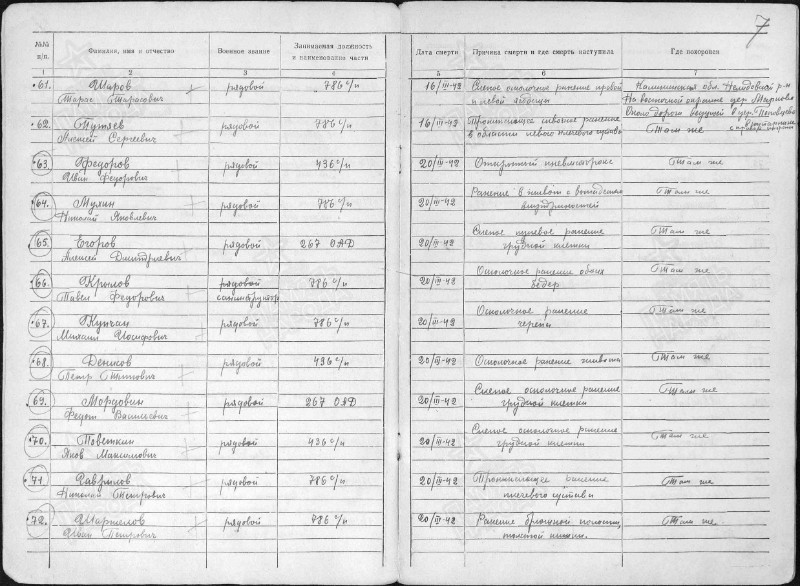 7
№№ Фамилия, имя и отчество Воинское звание Занимаемая должность Дата смерти Причина смерти и где смерть наступила Где похоронен
п/п. и наименование части
1 2 3 4 5 6 7
61. Шаров рядовой 786 с/п 16/III-42 Слепое осколочное ранение правой Калининская обл. р-н
Тарас Тарасович и левой ягодицы На восточной окраине дер.
62. Пуняев рядовой 786 с/п 16/III-42 Проникающее ранение Около дороги ведущей в дер.
Алексей Сергеевич в области левого плечевого сустава Там же
63. Федоров рядовой 436 с/п 20/III-42 Открытый пневмоторокс Там же
Иван Федорович
64. Мухин рядовой 786 с/п 20/III-42 Ранение в живот с Там же
Николай Яковлевич
65. Егоров рядовой 267 ОАД 20/III-42 Слепое пулевое ранение Там же
Алексей Дмитриевич грудной клетки
66. Крылов рядовой 786 с/п 20/III-42 Осколочное ранение обоих Там же
Павел Федорович санинструктор бедер
67. Купчан рядовой 786 с/п 20/III-42 Осколочное ранение Там же
Михаил Иосифович черепа
68. Денисов рядовой 436 с/п 20/III-42 Осколочное ранение живота Там же
Петр Титович
69. Мордовин рядовой 267 ОАД 20/III-42 Слепое осколочное ранение Там же
Федот Васильевич грудной клетки
70. Поветкин рядовой 436 с/п 20/III-42 Слепое осколочное ранение Там же
Яков Максимович грудной клетки
71. Гаврилов рядовой 786 с/п 20/III-42 Проникающее ранение Там же
Николай Петрович плечевого сустава
72. рядовой 786 с/п 20/III-42 Ранение брюшной полости, Там же
Иван Петрович толстой кишки.